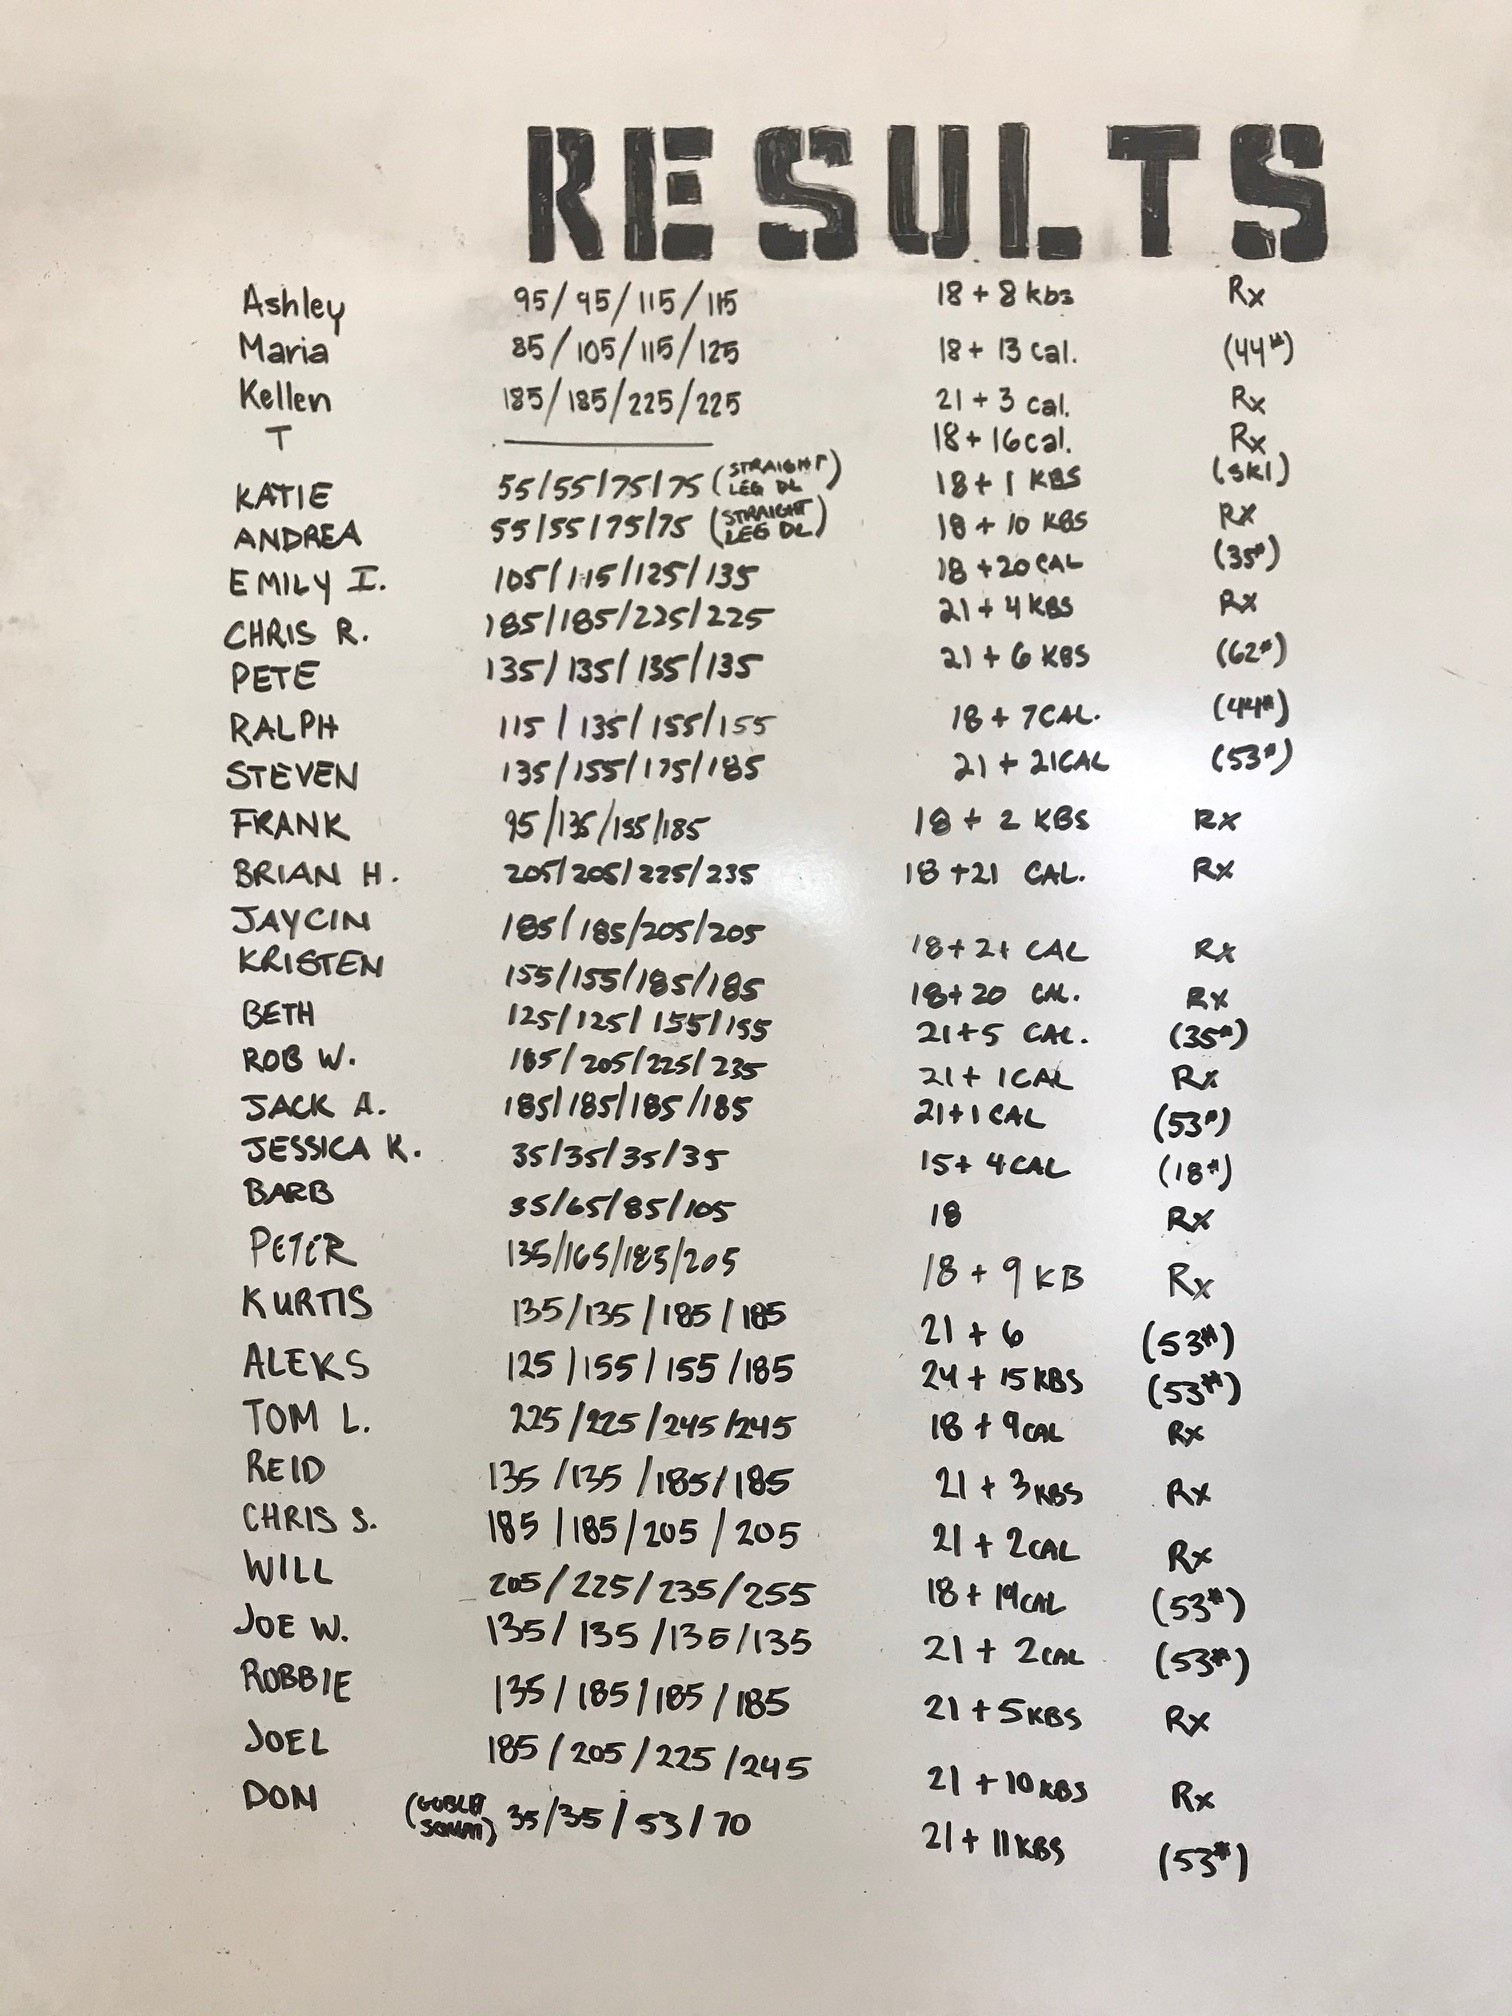 RESULTS
Ashley 95/95/115/115 18 + 8 kbs Rx
Maria 85/105/115/125 18 + 13 Cal. (44#)
Kellen 185/185/225/225 21 + 3 cal. Rx
T 18 + 16 cal. Rx
KATIE 55/55/75/75 (STRAIGHT LEG DL) 18 + 1 KBS (SKI)
ANDREA 55/55/75/75 (STRAIGHT LEG DL) 18 + 10 KBS RX
EMILY I. 105/115/125/135 18 + 20 CAL (35#)
CHRIS R. 185/185/225/225 21 + 4 KBS RX
PETE 135/135/135/135 21 + 6 KBS (62#)
RALPH 115/135/155/155 18 + 7 CAL. (44#)
STEVEN 135/155/175/185 21 + 21 CAL (53#)
FRANK 95/135/155/185 18 + 2 KBS RX
BRIAN H. 205/205/225/235 18 + 21 CAL. Rx
JAYCIN 185/185/205/205 18 + 21 CAL Rx
KRISTEN 155/155/185/185 18 + 20 CAL. Rx
BETH 125/125/155/155 21 + 5 CAL. (35#)
ROB W. 185/205/225/235 21 + 1 CAL Rx
JACK A. 185/185/185/185 21 + 1 CAL (53#)
JESSICA K. 35/35/35/35 15 + 4 CAL (18#)
BARB 35/65/85/105 18 Rx
PETER 135/165/185/205 18 + 9 KB Rx
KURTIS 135/135/185/185 21 + 6 (53#)
ALEKS 125/155/155/185 24 + 15 KBS (53#)
TOM L. 225/225/245/245 18 + 9 CAL Rx
REID 135/135/185/185 21 + 3 KBS Rx
CHRIS S. 185/185/205/205 21 + 2 CAL Rx
WILL 205/225/235/255 18 + 19 CAL (53#)
JOE W. 135/135/135/135 21 + 2 CAL (53#)
ROBBIE 135/185/185/185 21 + 5 KBS Rx
JOEL 185/205/225/245 21 + 10 KBS Rx
DON (GOBLET 35/35/53/70 21 + 11 KBS (53#)